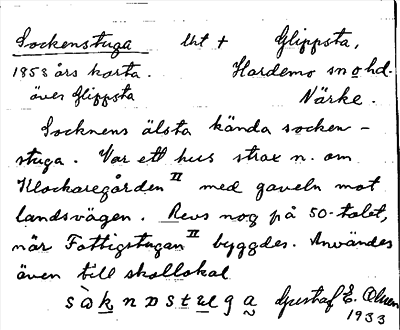 Sockenstuga lht + Glippsta,
1858 års karta. Hardemo sn o hd.
över Glippsta Närke.
Socknens älsta kända socken-
stuga. Var ett hus strax n. om
Klockaregården II med gaveln mot
landsvägen. Revs nog på 50-talet,
när Fattigstugan II byggdes. Användes
även till skollokal
Gustaf E.
1933